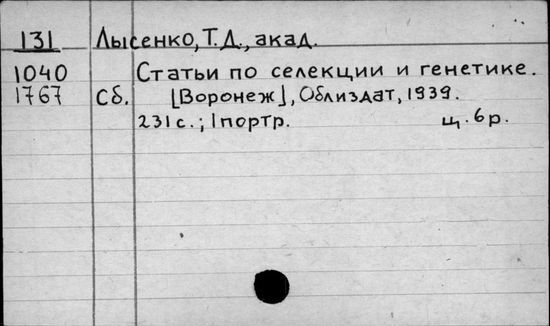 131 Лысенко, Т.Д., акад.
1040 Статьи по селекции и генетике.
1767 Сб. [Воронеж], Облиздат, 1939.
231 с.; 1 портр. ц. 6 р.